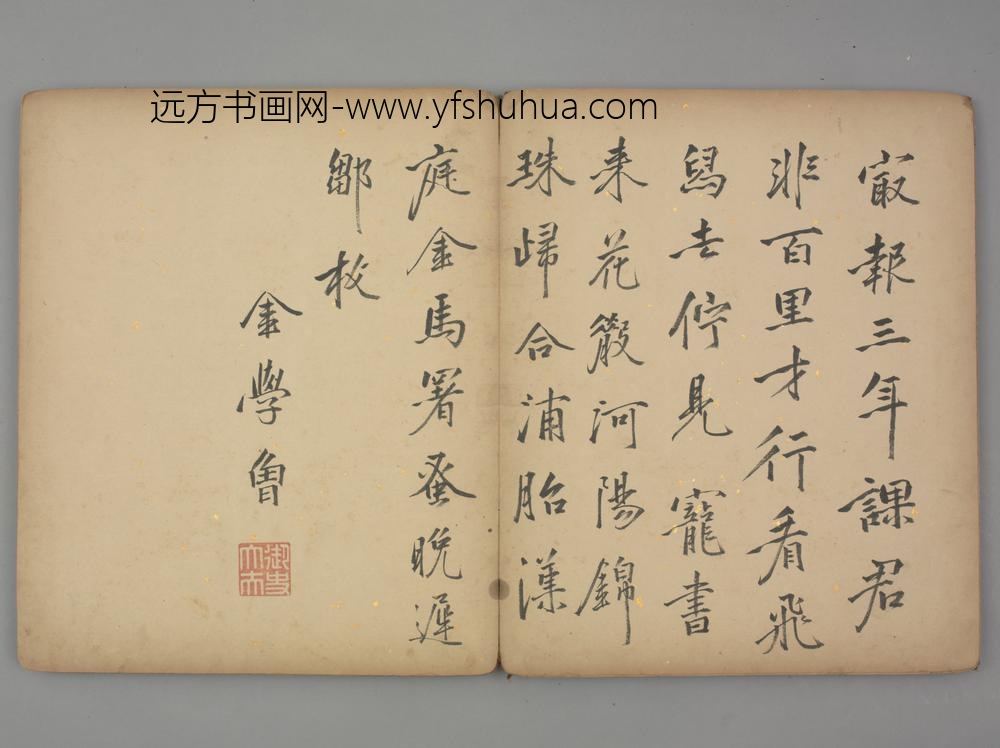 远方书画网-www.yfshuhua.com
冣報三年課君
非百里才行看飛
舄去佇見寵書
来花發河陽錦
珠歸合浦胎漢
庭金馬署蚤晚遲
鄒枚
金學曾